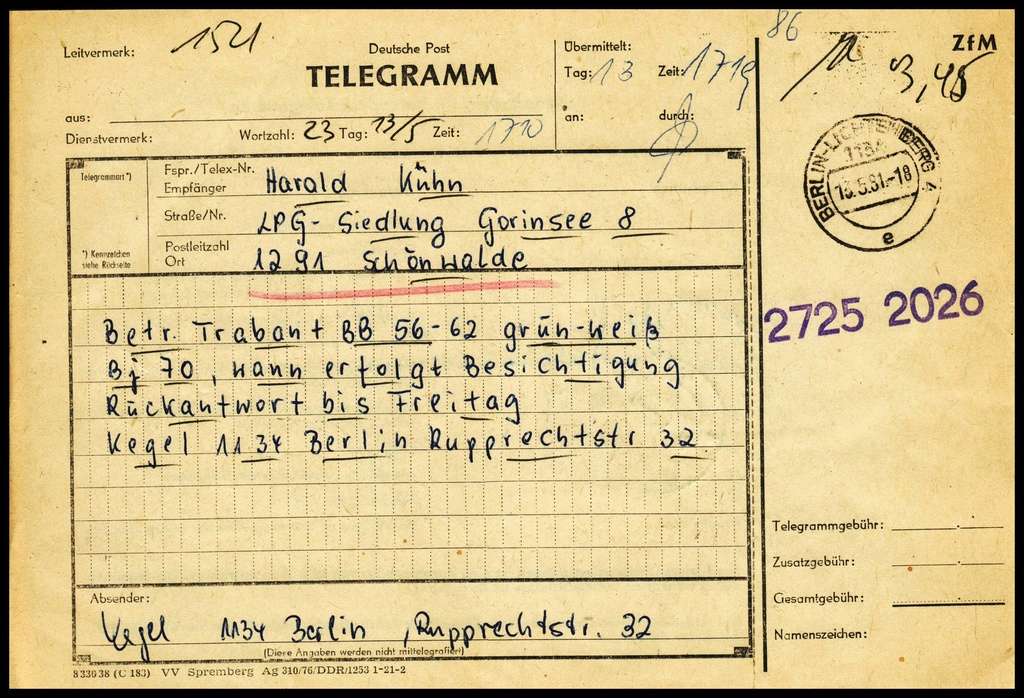 Leitvermerk: 1521
Deutsche Post
TELEGRAMM
aus:
Dienstvermerk: Wortzahl: 23 Tag: 13/5 Zeit: 1710
Übermittelt:
Tag: 13 Zeit: 1719
an: durch:
86
ZfM
3,45
Telegrammart *)
*) Kennzeichen
siehe Rückseite
Fspr./Telex-Nr.
Empfänger Harald Kühn
Straße/Nr. LPG-Siedlung Gorinsee 8
Postleitzahl
Ort 1291 Schönwalde
BERLIN-LICHTENBERG 4
1134
13.5.81.-18
e
2725 2026
Betr. Trabant BB 56-62 grün-weiß
Bj 70, wann erfolgt Besichtigung
Rückantwort bis Freitag
Kegel 1134 Berlin Rupprechtstr 32
Telegrammgebühr:
Zusatzgebühr:
Gesamtgebühr:
Namenszeichen:
Absender:
Kegel 1134 Berlin, Rupprechtstr. 32
(Diese Angaben werden nicht mittelegrafiert)
8 336 38 (C 183) VV Spremberg Ag 310/76/DDR/1253 1-21-2